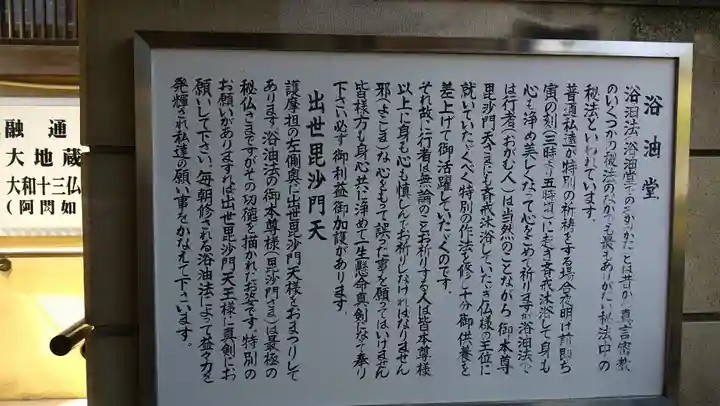 浴油堂
浴油法、浴油堂での「おがみかた」とは昔から真言密教
のいくつかの秘法のなかでも最もありがたい秘法中の
秘法といわれています。
普通私達が特別の祈祷をする場合夜明け前即ち
寅の刻(三時より五時迄)に起き斉戒沐浴して身も
心も浄め美しくなって心をこめて祈りますが浴油法で
は行者(おがむ人)は当然のことながら、御本尊
毘沙門天さまにも斉戒沐浴していたゞき仏様の上位に
就いていたゞくべく特別の作法を修し十分御供養を
差上げて御活躍していたゞくのです。
それ故に行者は無論のことお祈りする人は皆本尊様
以上に身も心も慎しんでお祈りしなければなりません
邪(よこしま)な心をもって誤った事を願ってはいけません
皆様方も身心共に浄めて一生懸命真剣になって奉り
下さい必ず御利益御加護があります。
出世毘沙門天
護摩壇の左側奥に出世毘沙門天様をおまつりして
あります。浴油法の御本尊様(毘沙門さま)は最極の
秘仏さまですがその功徳を描かれたお姿です。特別の
お願いがありますれば出世毘沙門天王様に真剣にお
願いして下さい、毎朝修される浴油法によって益々力を
発揮され私達の願い事をかなえて下さいます。
融通
大地蔵
大和十三仏
(阿閦如